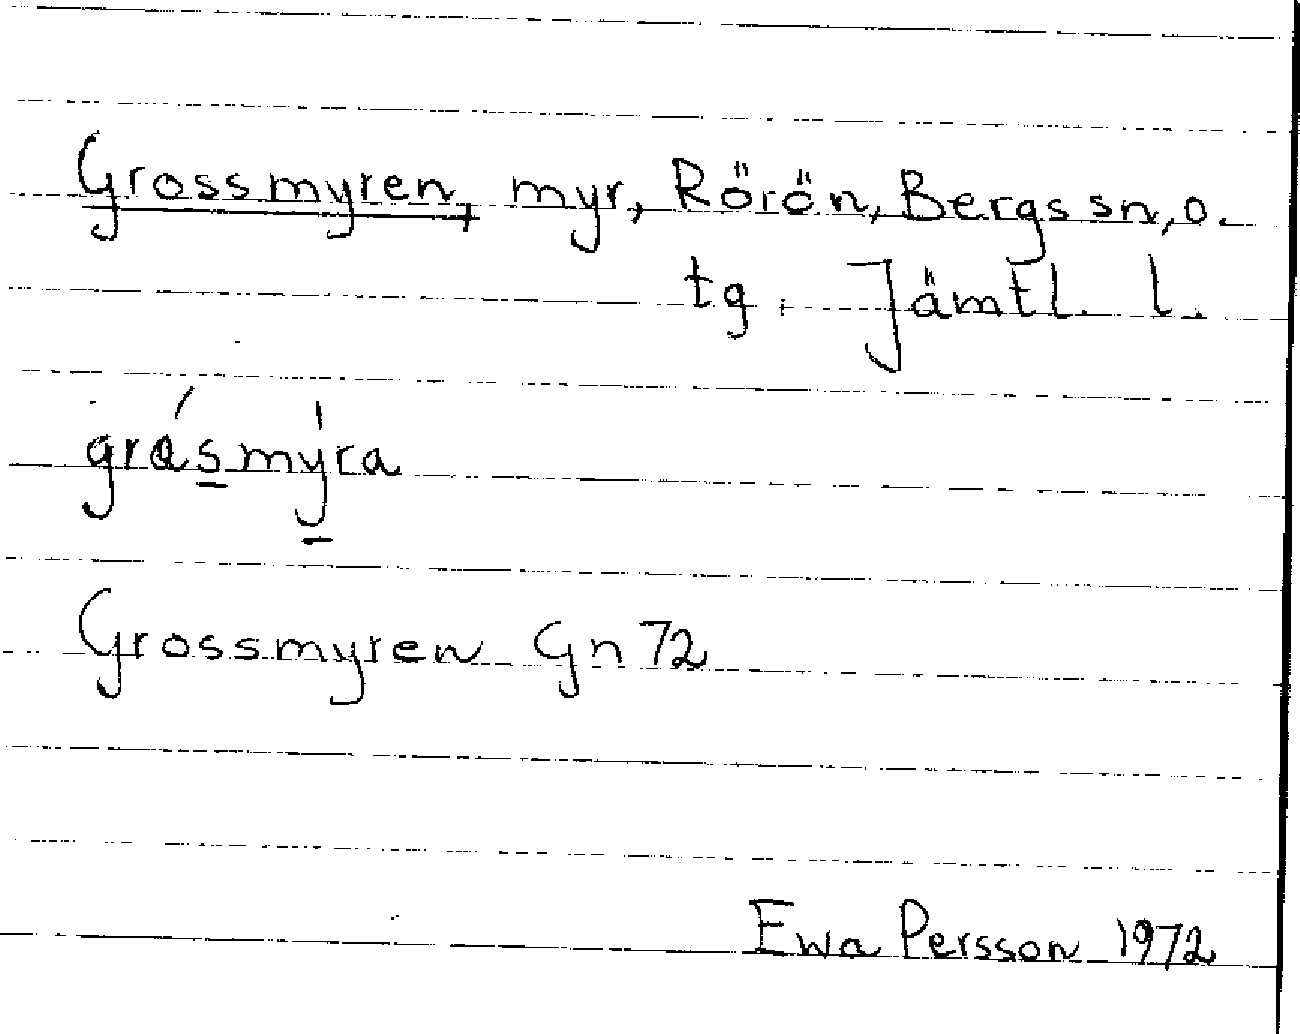 Grossmyren, myr, Rörön, Bergs sn, o.
tg. Jämtl. l.
grásmýra
Grossmyren Gn 72
Ewa Persson 1972